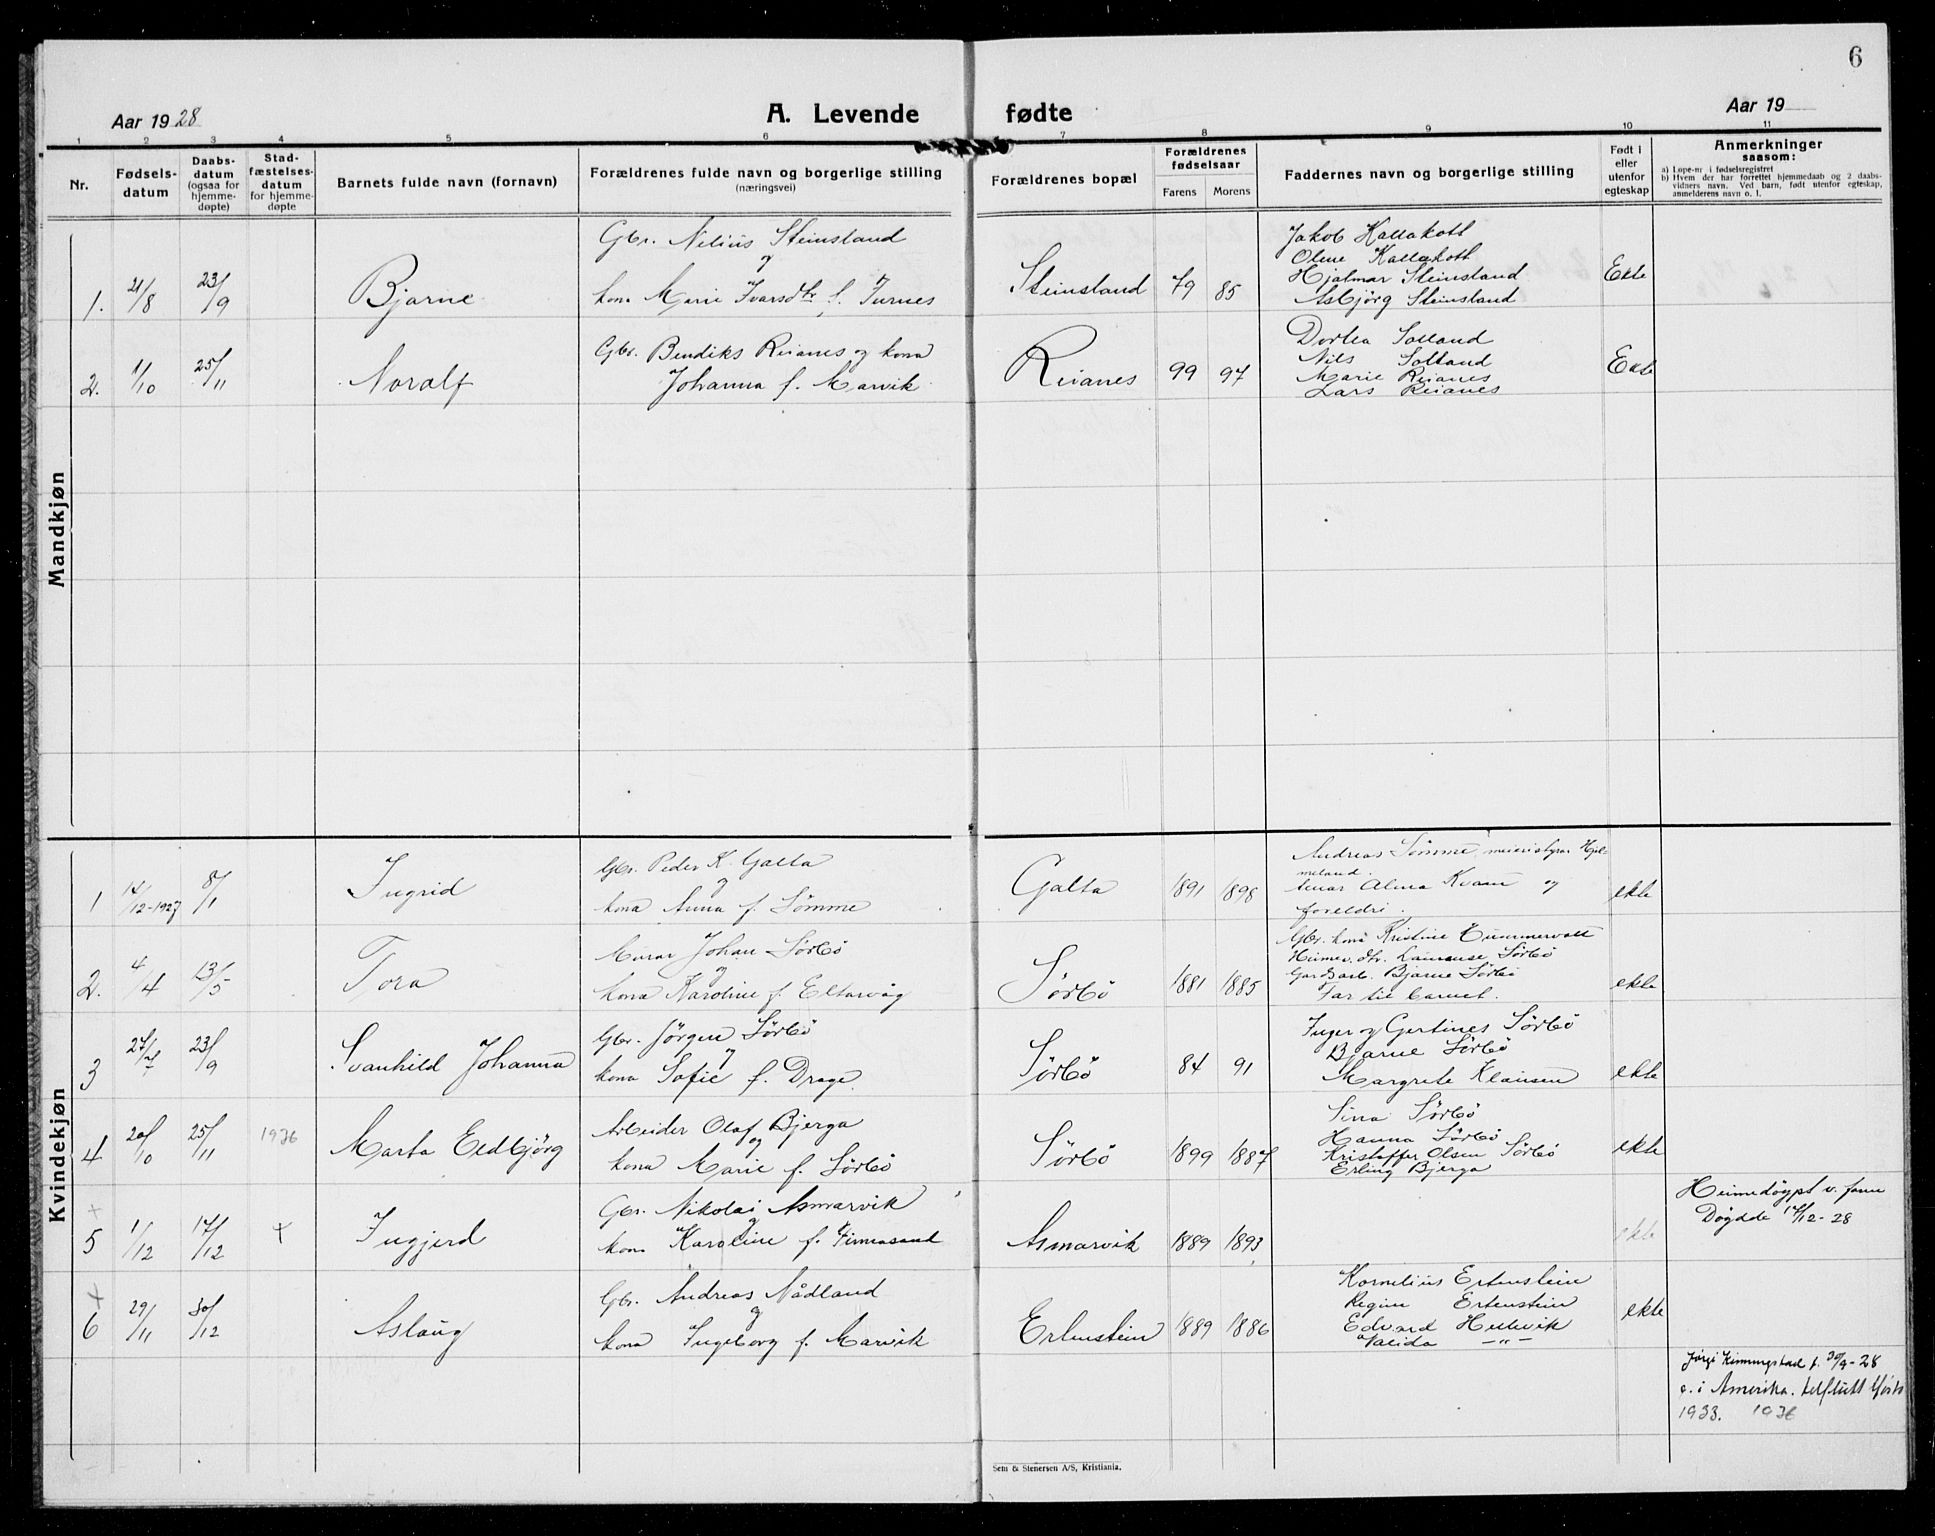 6
Aar 1928
A. Levende fødte
Aar 19
1 2 3 4 5 6 7 8 9 10 11
Nr.
Fødsels-
datum
Daabs-
datum
(ogsaa for
hjemme-
døpte)
Stad-
fæstelses-
datum
for hjemme-
døpte
Barnets fulde navn (fornavn)
Forældrenes fulde navn og borgerlige stilling
(næringsvei)
Forældrenes bopæl
Forældrenes
fødselsaar
Farens Morens
Faddernes navn og borgerlige stilling
Født i
eller
utenfor
egteskap
Anmerkninger
saasom:
a) Løpe-nr i fødselsregistret
b) Hvem der har forrettet hjemmedaab og 2 daabs-
vidners navn. Ved barn, født utenfor egteskap,
anmelderens navn o. l.
Mandkjøn
1. 21/8 23/9 Bjarne
Gbr. Nilius Steinsland
og
kona Marie Ivarsdtr f. Furnes
Steinsland 79 85
Jakob Hallakott
Oline Kallakott
Hjalmar Steinsland
Asbjörg Steinsland
Ekte
2. 1/10 25/11 Noralf
Gbr. Bendiks Reianes og kona
Johanna f. Marvik
Reianes 99 97
Dortea Solland
Nils Solland
Marie Reianes
Lars Reianes
Ekte
Kvindekjøn
1 14/12-1927 8/1 Ingrid
Gbr. Peder K. Galta
og
kona Anna f. Sömme
Galta 1891 1898
Andreas Sömme, meieristyrar Hjel-
meland.
Alma Kvam og
foreldri.
ekte
2. 4/4 13/5 Tora
Murar Johan Sörbö
og
kona Karoline f. Eltarvåg
Sörbö 1881 1885
Gbr. kona Kristine
Heimev. dtr. Sörbö
Gardsarb. Bjarne Sörbö
Far til barnet.
ekte
3 27/7 23/9 Svanhild Johanna
Gbr. Jörgen Sörbö
og
kona Sofie f. Drage.
Sörbö 84 91
Inger og Gertines Sörbö
Bjarne Sörbö
Margrete Klausen
ekte
4 20/10 25/11 1936 Marta Eldbjörg
Arbeider Olaf Bjerga
og
kona Marie f. Sörbö
Sörbö 1899 1887
Sina Sörbö
Hanna Sörbö
Kristoffer Olsen Sörbö
Erling Bjerga
ekte
+
5 1/12 17/12 + Ingjerd
Gbr. Nikolai Asmarvik
og
kona Karoline f. Finnesand
Asmarvik 1889 1893
ekte
Heimedöypt v. faren
Döydde 17/12-28
+
6 29/11 30/12 Aslaug
Gbr. Andreas Nådland
og
kona Ingeborg f. Marvik
Ertenstein 1889 1886
Kornelius Ertenstein
Regine Ertenstein
Edvard Helevik
Valida —"—
ekte
f. 30/9-28
i Amerika.
1933. 1936
Sem & Stenersen A/S, Kristiania.